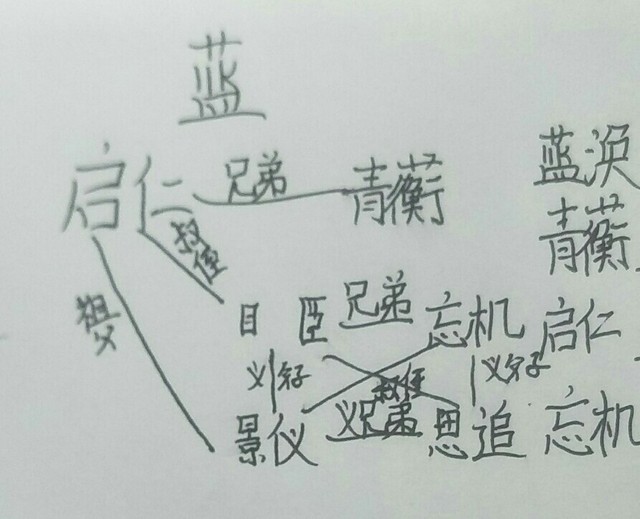 蓝
启仁 兄弟 青蘅 蓝涣
叔侄 青蘅
祖父 目 臣 兄弟 忘机 启仁
义子 叔侄 义子
景仪 义兄弟 思追 忘机